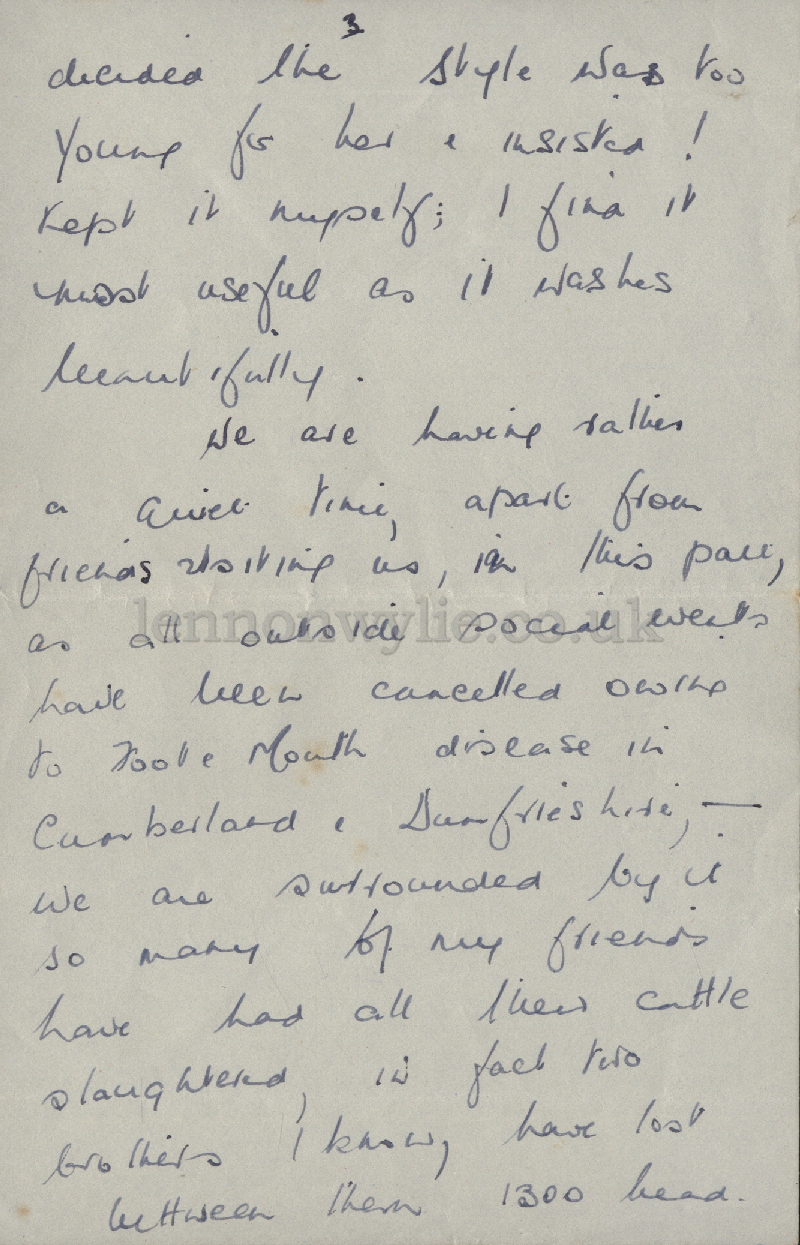 3
decided the style was too
young for her & insisted I
kept it myself; I find it
most useful as it washes
beautifully.
We are having rather
a quiet time, apart from
friends visiting us, in this part,
lennonwylie.co.uk
as all outside social events
have been cancelled owing
to Foot & Mouth disease in
Cumberland & Dumfrieshire, —
we are surrounded by it
so many of my friends
have had all their cattle
slaughtered, in fact two
brothers I know, have lost
between them 1300 head.